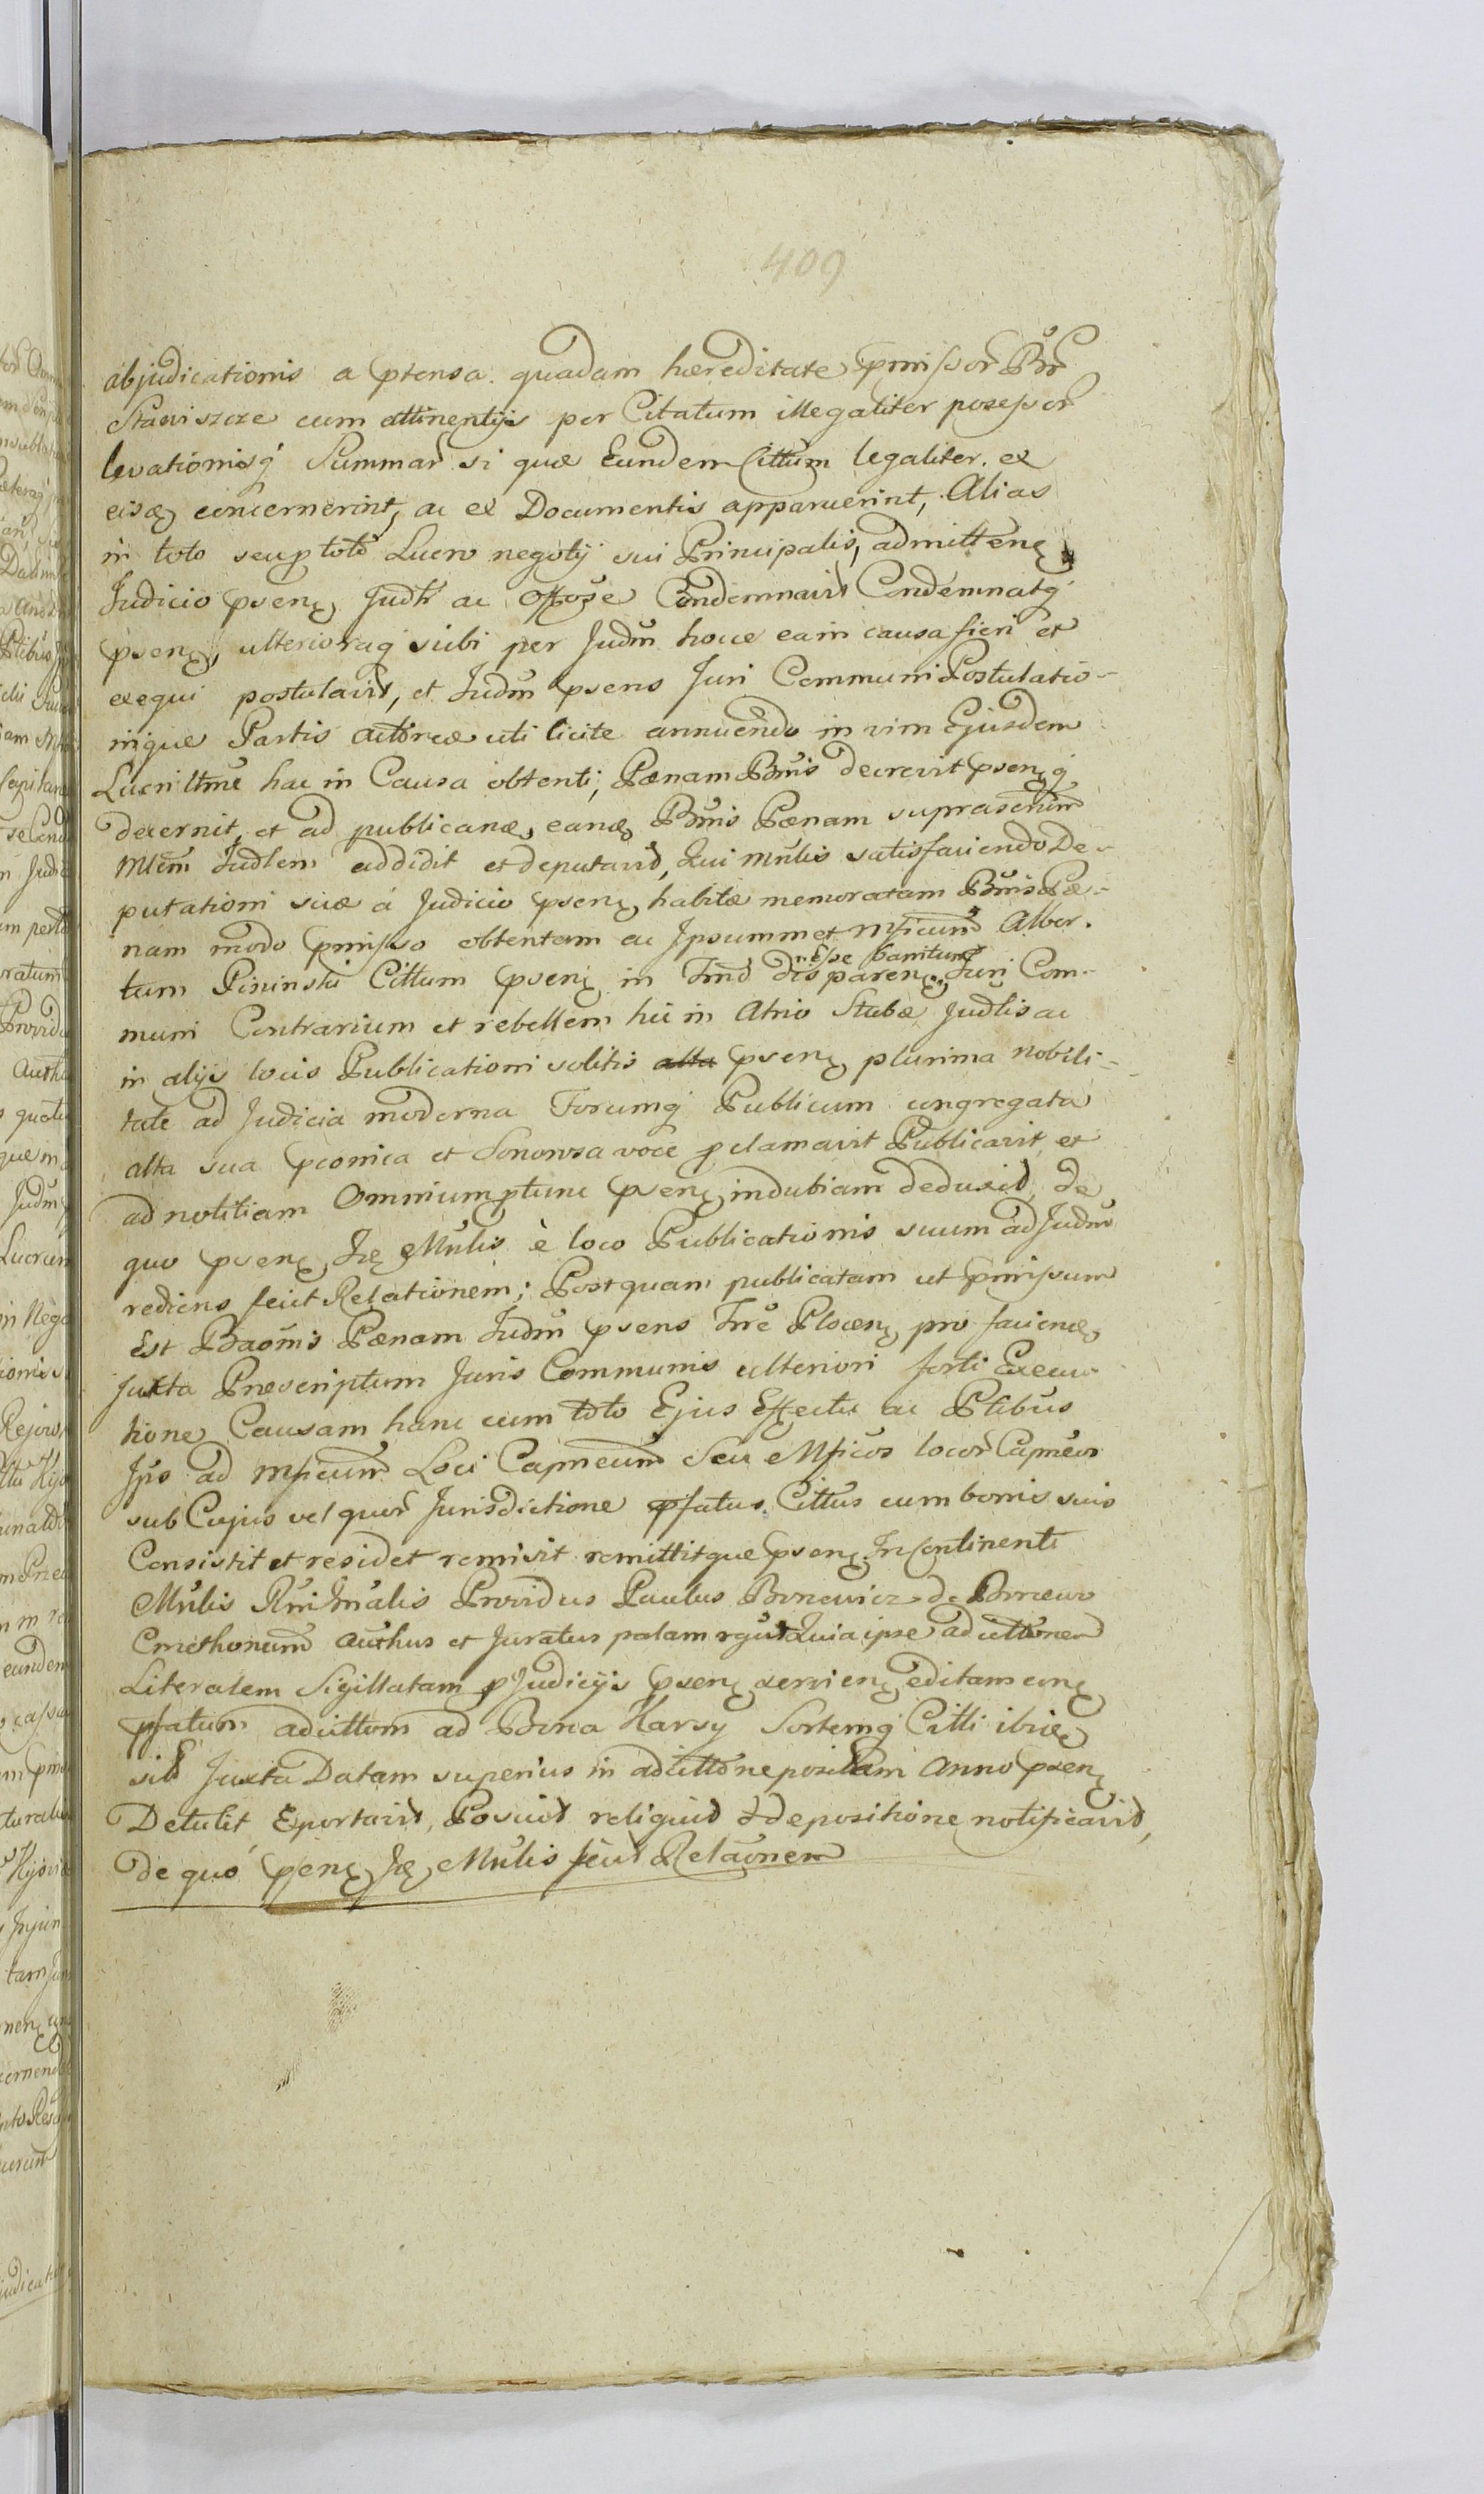 409
abjudicationis a ptensa quadam hæreditate pmissor Bor
Stawiszcze cum attinentijs per Citatum illegaliter possessor
levationisq́ Summar si quæ Eundem Cittum legaliter ex
eisdę concernerint, ac ex Documentis apparuerint, Alias
in toto seu p toto Lucro negotij sui Principalis, admittenę
Judicio psenę Judtr ac Offose Condemnavit Condemnatq́
psenę, ulterioraq́ sibi per Judm hocce ea in causa fieri et
exequi postulavit, et Judm psens Juri Communi Postulatio-
nique Partis actoreæ uti licite annuendo in vim Ejusdem
Lucri ltme hac in Causa obtenti, Pænam Bnis decrevit psenęq́
decernit, et ad publicandę eandę Bnis Pænam suprascrtum
Mlem Judlem addidit et deputavit, Qui Mnlis satisfaciendo De-
putationi suæ á Judicio psenę habitæ memoratam Bnis Pæ-
nam modo pmisso obtentam ac Ipsummet Mficum Alber-
tum Pininski Cittum psenę in Tmo dis parenę, Juri Com-
resse banitum
muni Contrarium et rebellem hic in Atrio Stubæ Judlis ac
in alijs locis Publicationi solitis alta psenę plurima nobili-
tate ad Judicia moderna Forumq́ Publicum congregata
alta sua pconica et Sonorosa voce pclamavit Publicavit, et
ad notitiam Omnium ptunc psenę indubiam deduxit, de
quo psenę Idę Mnlis è loco Publicationis suum ad Judm
rediens fecit Relationem; Postquam publicatam ut pmissum
Est Baonis Pænam Judm psens Tre Plocenę pro faciendę
juxta Præscriptum Juris Communis ulteriori forti Execu-
tione Causam hanc cum toto Ejus Effectu ac Ptibus
Ipis ad Mficum Loci Capneum Seu Mficos locor Capneos
sub Cujus vel quor Jurisdictione pfatus Cittus cum bonis suis
Consistit et residet remisit remittitque psenę In Continenti
Mnlis Rni Gnalis Providus Paulus Borewicz de Borcewo
Cmethonum authus et Juratus palam rgut Quia ipse adcittonem
Literalem Sigillatam p Judicijs psenę servienę editam cunę
pfatum adcittom ad Bona Karsy Sortemq́ Citti ibidę
sit Juxta Datam superius in adcittone positam Anno psenę
Detulit Exportavit, Posuit reliquit & depositione notificavit,
De quo psenę Idę Mnlis fecit Relaonem